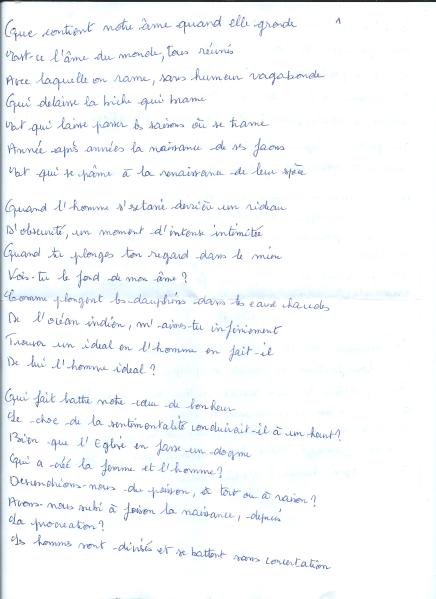 Que contient notre âme quand elle gronde 1
Est-ce l'âme du monde, tous réunis
Avec laquelle on rame, sans humeur vagabonde
Qui delaisse la biche qui brame
Et qui laisse passer les saisons où se trame
Année après années la naissance de ses faons
Et qui se pâme à la renaissance de leur
Quand l'homme derrière un rideau
D'obscurité, un moment d'intense intimitée
Quand tu plonges ton regard dans le mien
Vois-tu le fond de mon âme ?
Comme plongent les dauphins dans les eaux chaudes
De l'océan indien, m'aimes-tu infiniment
Trouver un ideal ou l'homme en fait-il
De lui l'homme idéal ?
Qui fait battre notre cœur de bonheur
Le choc de la sentimentalité conduirait-il à un heurt?
Bien que l'Eglise en fasse un dogme
Qui a créé la femme et l'homme?
Descendrions-nous du poisson, à tort ou à raison ?
Avons-nous subi à foison la naissance, depuis
La procreation?
Les hommes sont divisés et se battent sans concertation